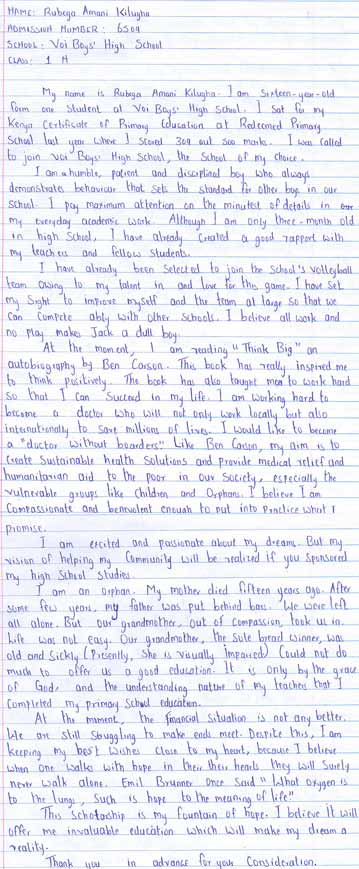 NAME: Rubega Amani Kilugha
ADMISSION NUMBER: 6509
SCHOOL: Voi Boys' High School
CLASS: 1 H
My name is Rubega Amani Kilugha. I am Sixteen-year-old
form one student at Voi Boys' High School. I Sat for my
Kenya Certificate of Primary Education at Redeemed Primary
School last year where I scored 309 out 500 marks. I was Called
to join Voi Boys' High School, the School of my choice.
I am a humble, patient and disciplined boy who always
demonstrates behaviour that sets the standard for other boys in our
School. I pay maximum attention on the minutest of details in our
my everyday academic work. Although I am only three-month old
in high School, I have already created a good rapport with
my teachers and fellow Students.
I have already been Selected to join the School's volleyball
team owing to my talent in and love for this game. I have set
my Sight to improve myself and the team at large so that we
Can Compete ably with other Schools. I believe all work and
no play makes Jack a dull boy.
At the moment, I am reading "Think Big" an
autobiography by Ben Carson. This book has really inspired me
to think positively. The book has also taught me to work hard
so that I can Succeed in my life. I am working hard to
become a doctor who will not only work locally but also
internationally to save millions of lives. I would like to become
a "doctor without boarders" Like Ben Carson, my aim is to
create Sustainable health Solutions and provide medical relief and
humanitarian aid to the poor in our Society, especially the
vulnerable groups like Children and Orphans. I believe I am
Compassionate and benevolent enough to put into Practice what I
promise.
I am excited and passionate about my dreams. But my
vision of helping my Community will be realized if you Sponsored
my high School Studies.
I am an orphan. My mother died fifteen years ago. After
some few years, my father was put behind bars. We were left
all alone. But our grandmother, out of Compassion, took us in.
Life was not easy. Our grandmother, the Sole bread winner, was
old and Sickly (Presently, She is visually impaired) Could not do
much to offer us a good education. It is only by the grace
of God, and the understanding nature of my teachers that I
Completed my primary School education.
At the moment, the financial Situation is not any better.
We are still Struggling to make ends meet. Despite this, I am
keeping my best wishes Close to my heart, because I believe
when one walks with hope in their hearts they will Surely
never walk alone. Emil Brunner Once Said "What oxygen is
to the lungs, Such is hope to the meaning of life"
This Scholarship is my fountain of hope. I believe it will
offer me invaluable education which will make my dream a
reality.
Thank you in advance for your Consideration.